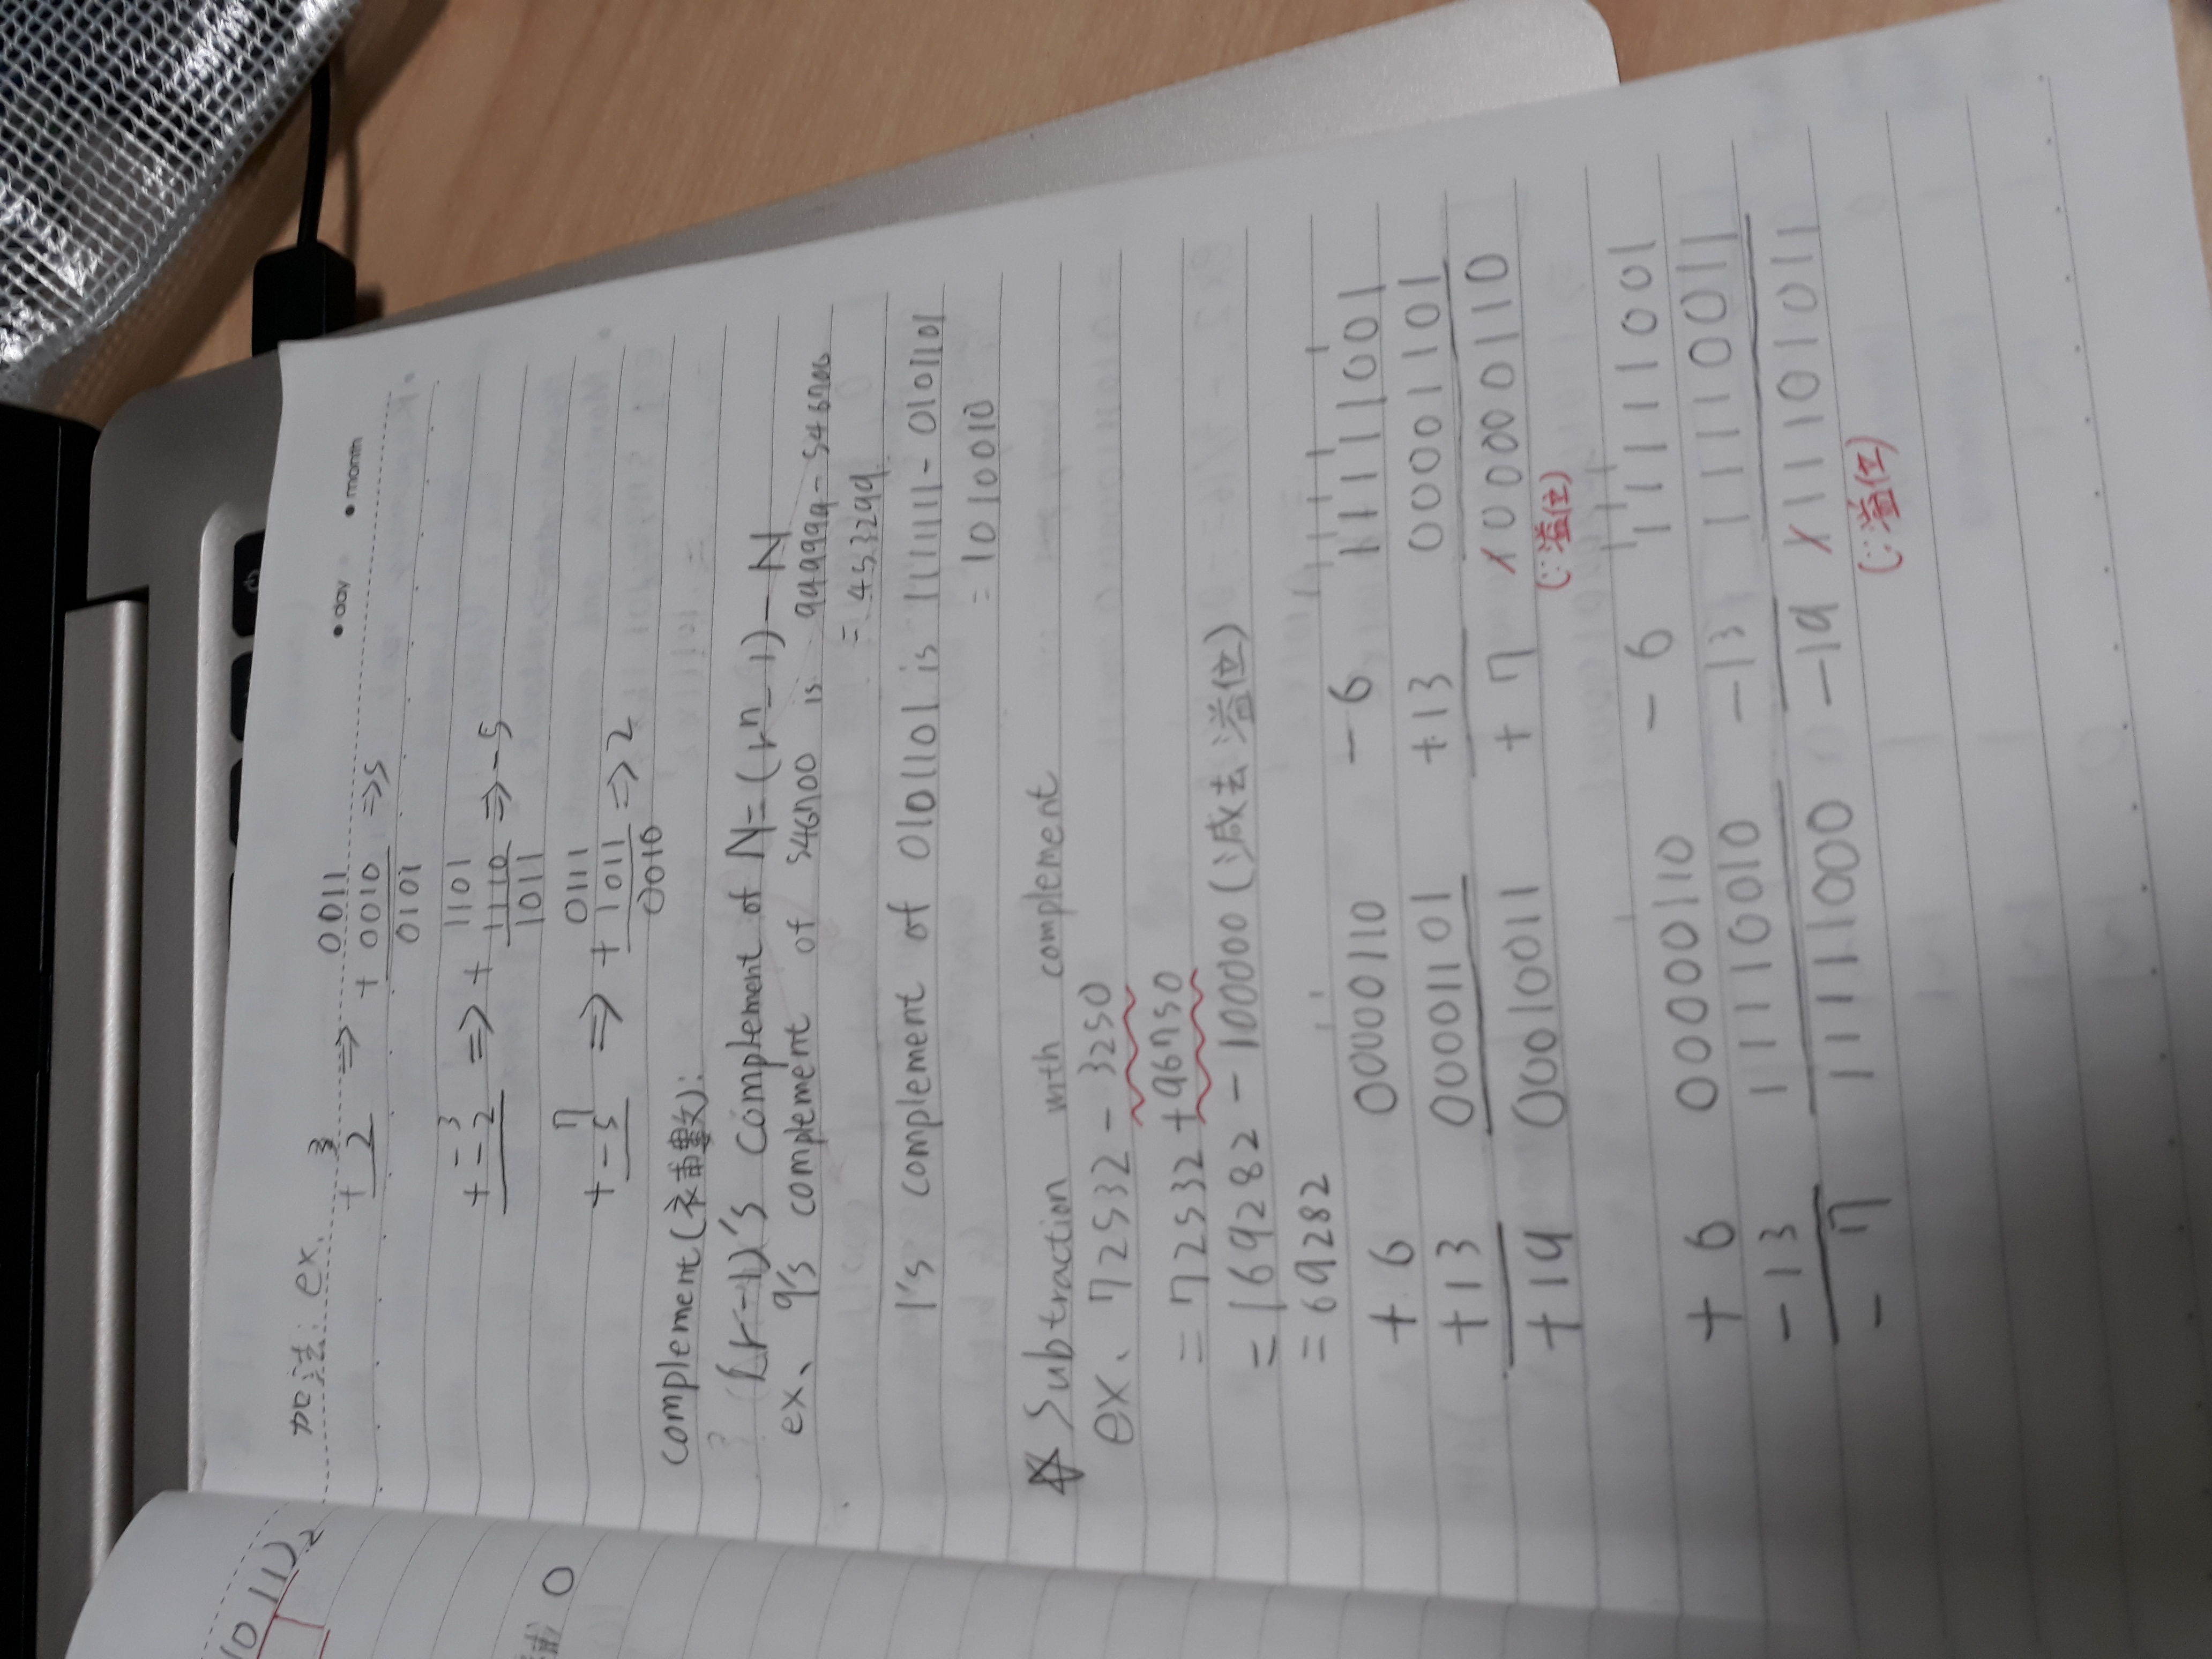 10 11)₂
截 0
• day • month
加法: ex. 3
+ 2 ⇒ 0011
+ 0010 ⇒5
0101
-3
+ -2 ⇒ + 1101
1110 ⇒ -5
1011
7
+ -5 ⇒ 0111
+ 1011 ⇒ 2
0010
complement (補數):
? (r-1)'s complement of N = (rⁿ-1) - N
ex、 9's complement of 546700 is 999999 - 546700
= 453299
1's complement of 0101101 is 1111111 - 0101101
= 1010010
☆ Subtraction with complement
ex、 72532 - 3250
= 72532 + 96750
= 169282 - 100000 (減去溢位)
= 69282
+ 6 00000110 - 6 11111001
+13 00001101 +13 00001101
+19 00010011 + 7 100000110
(∵溢位)
+ 6 00000110 - 6 11111001
- 13 11110010 -13 11110011
- 7 11111000 -19 111101011
(∵溢位)